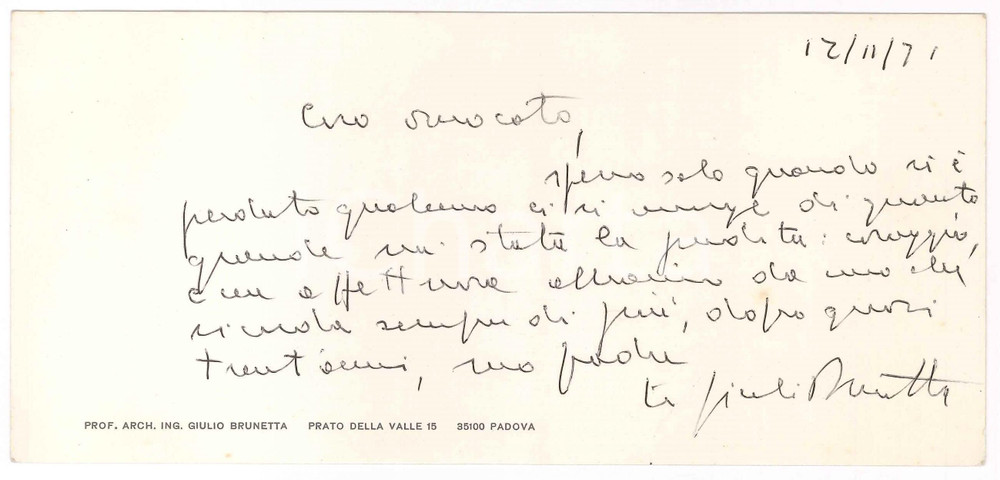 12/11/71
Caro avvocato,
spesso solo quando si è
perduto qualcuno ci si accorge di quanto
grande sia stata la perdita: coraggio,
e un affettuoso abbraccio da uno che
ricorda sempre di più, dopo quasi
trent'anni, suo padre
Giulio Brunetta
PROF. ARCH. ING. GIULIO BRUNETTA PRATO DELLA VALLE 15 35100 PADOVA